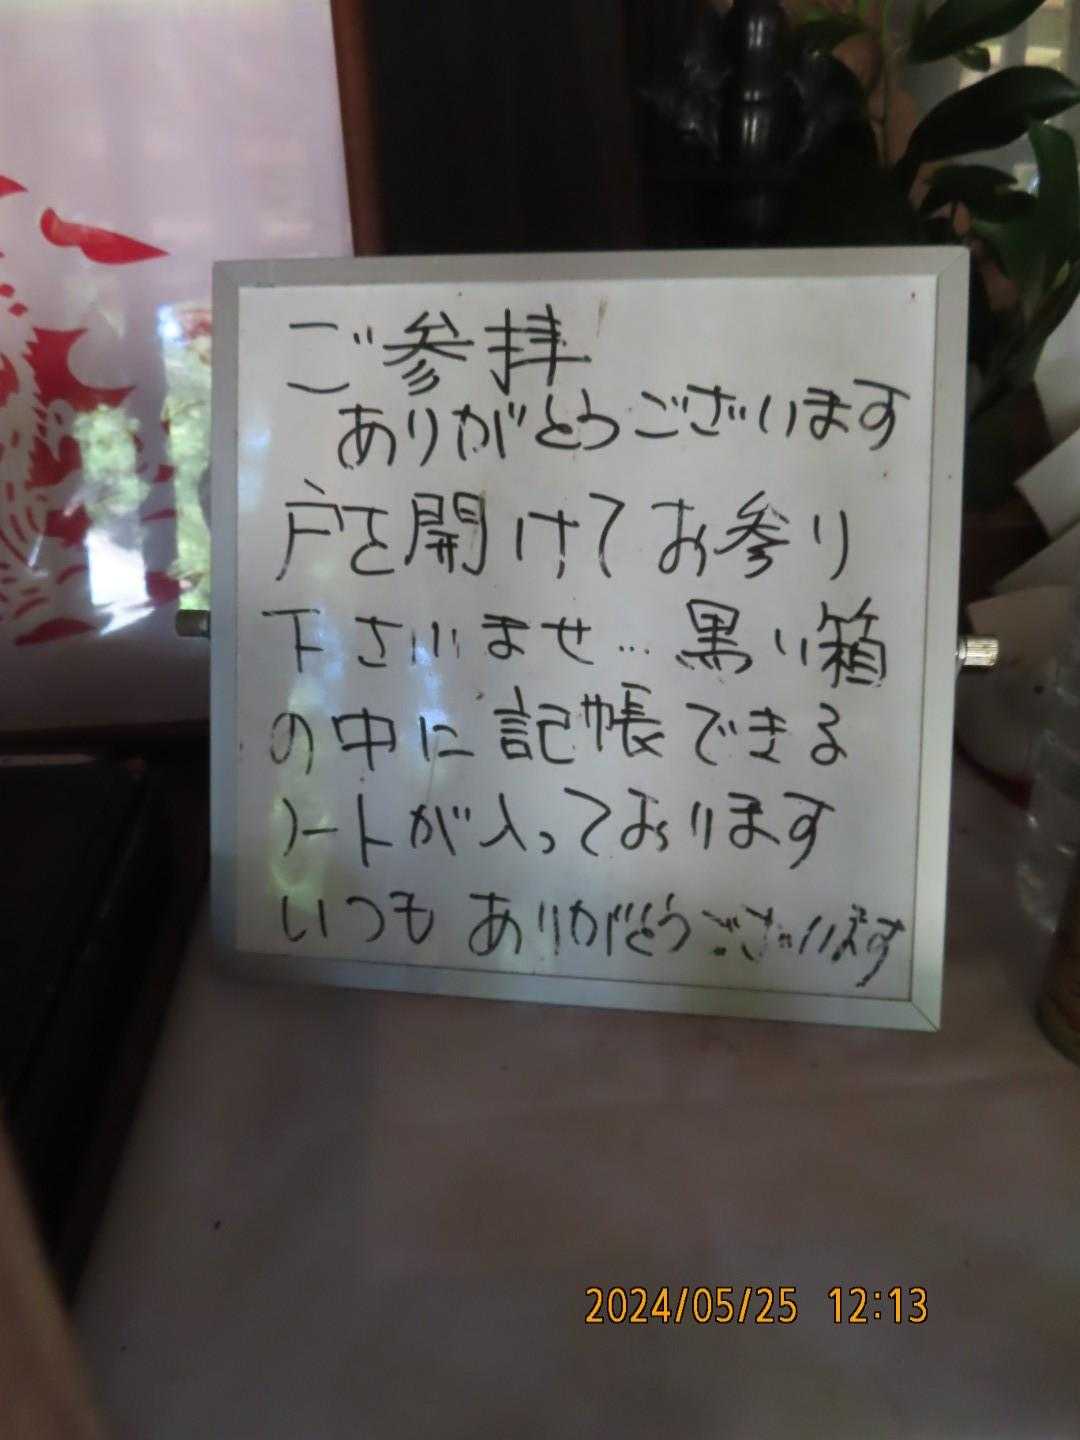 ご参拝
ありがとうございます
戸を開けてお参り
下さいませ…黒い箱
の中に記帳できる
ノートが入っております
いつもありがとうございます
2024/05/25 12:13